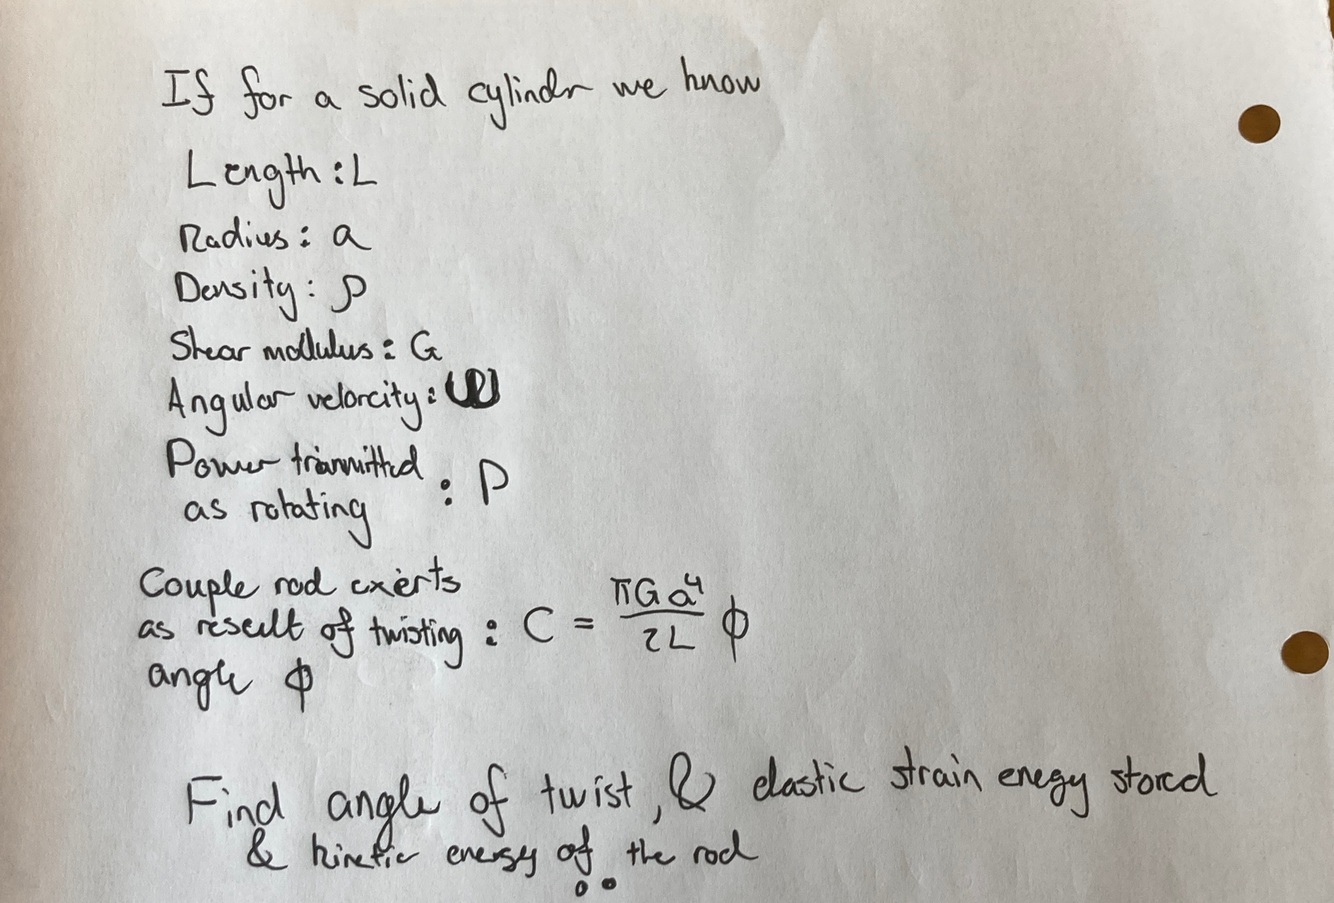 If for a solid cylindr we know
Length : L
Radius : a
Density : ρ
Shear modulus : G
Angular velorcity : ω
Power tranmitted
as rotating : P
Couple rod exerts
as result of twisting : C = πGa⁴/2L ϕ
angle ϕ
Find angle of twist, & elastic strain enegy stored
& kinetic energy of the rod